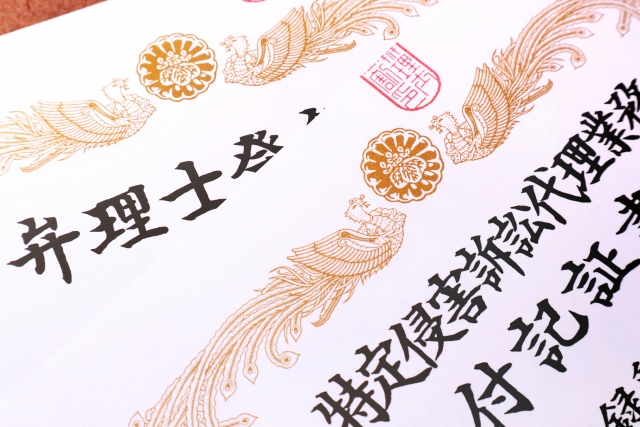 弁理士登
特定侵害訴訟代理業務
付記証書
録